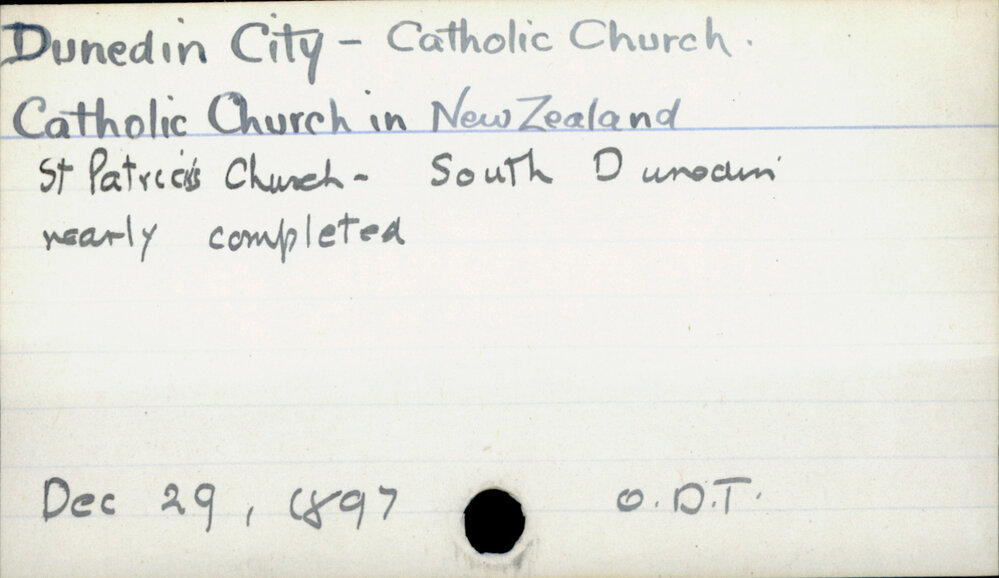 Dunedin City - Catholic Church.
Catholic Church in New Zealand
St Patrick's Church - South Dunedin
nearly completed
Dec 29, 1897 O.D.T.